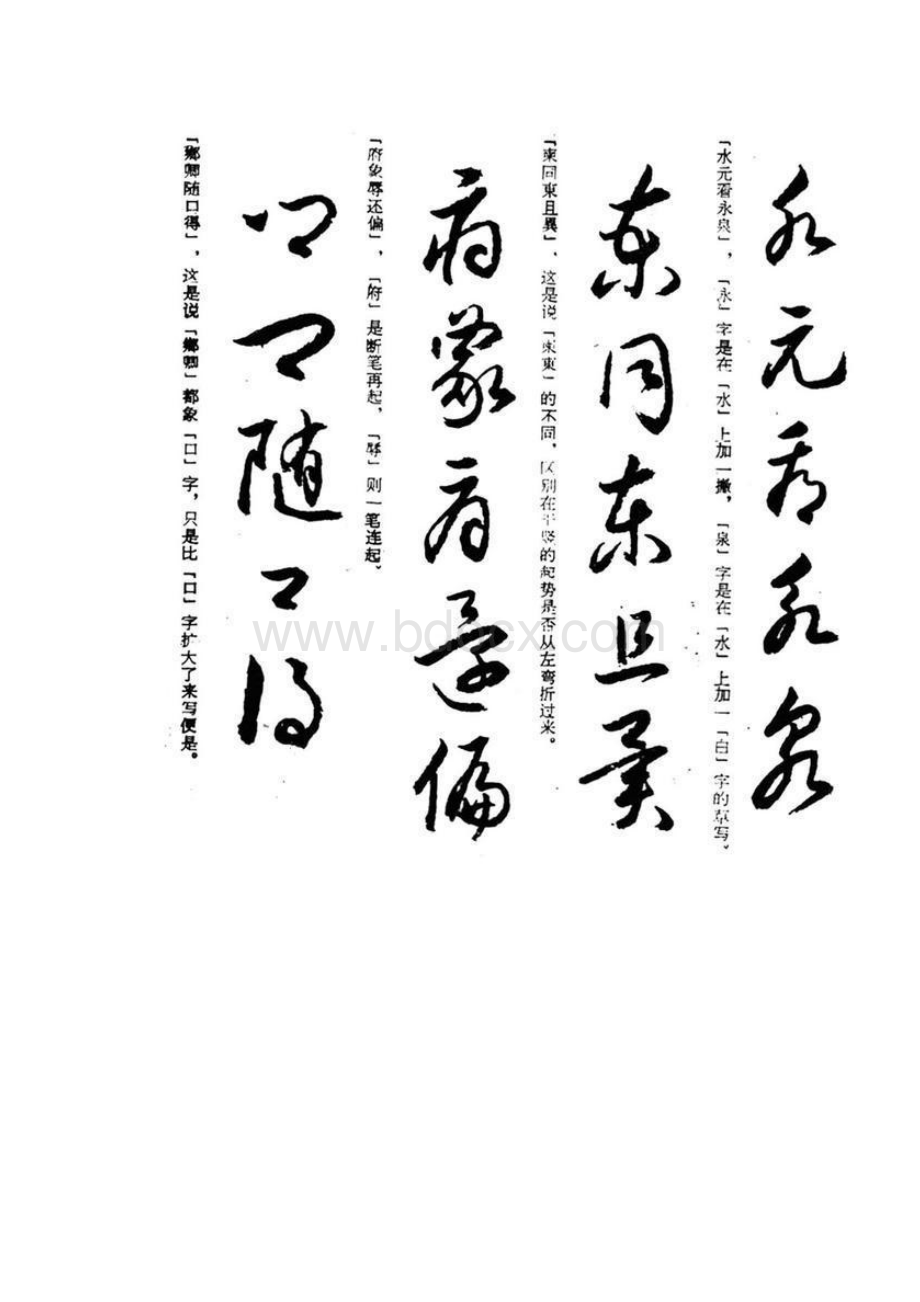 水元看永泉
「水元看永泉」，「永」字是在「水」上加一撇，「泉」字是在「水」上加一「白」字的草写。
柬同東且異
「柬同東且異」，这是说「柬東」的不同，区别在于竖的起势是否从左弯折过来。
府象辱還偏
「府象辱还偏」，「府」是断笔再起，「辱」则一笔连起。
鄉卿随口得
「鄉卿随口得」，这是说「鄉卿」都象「口」字，只是比「口」字扩大了来写便是。
www.bdocx.com